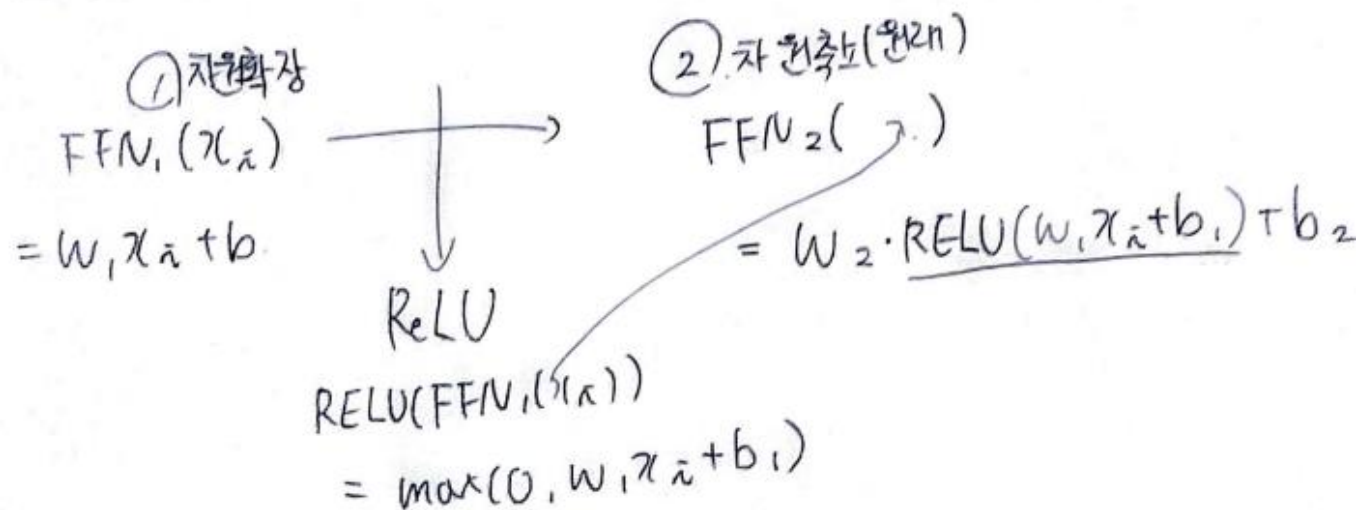 ① 차원확장
FFN₁(xᵢ)
= W₁xᵢ+b
ReLU
RELU(FFN₁(xᵢ))
= max(0, W₁xᵢ+b₁)
② 차원축소(원래)
FFN₂( )
= W₂·RELU(W₁xᵢ+b₁)+b₂